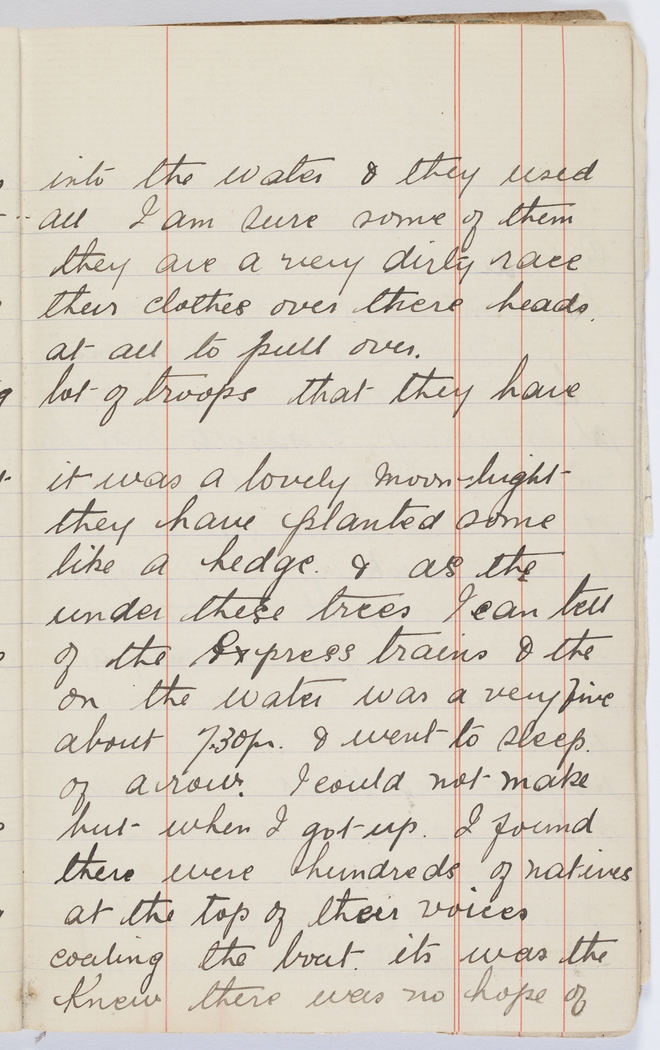 into the water & they used
all I am sure some of them
they are a very dirty race
their clothes over there heads.
at all to pull over.
lot of troops that they have
it was a lovely moon-light
they have planted some
like a hedge. & as the
under these trees I can tell
of the Express trains & the
on the water was a very fine
about 7.30pm. & went to sleep.
of a row. I could not make
but when I got up. I found
there were hundreds of natives
at the top of their voices
coaling the boat. its was the
Knew there was no hope of